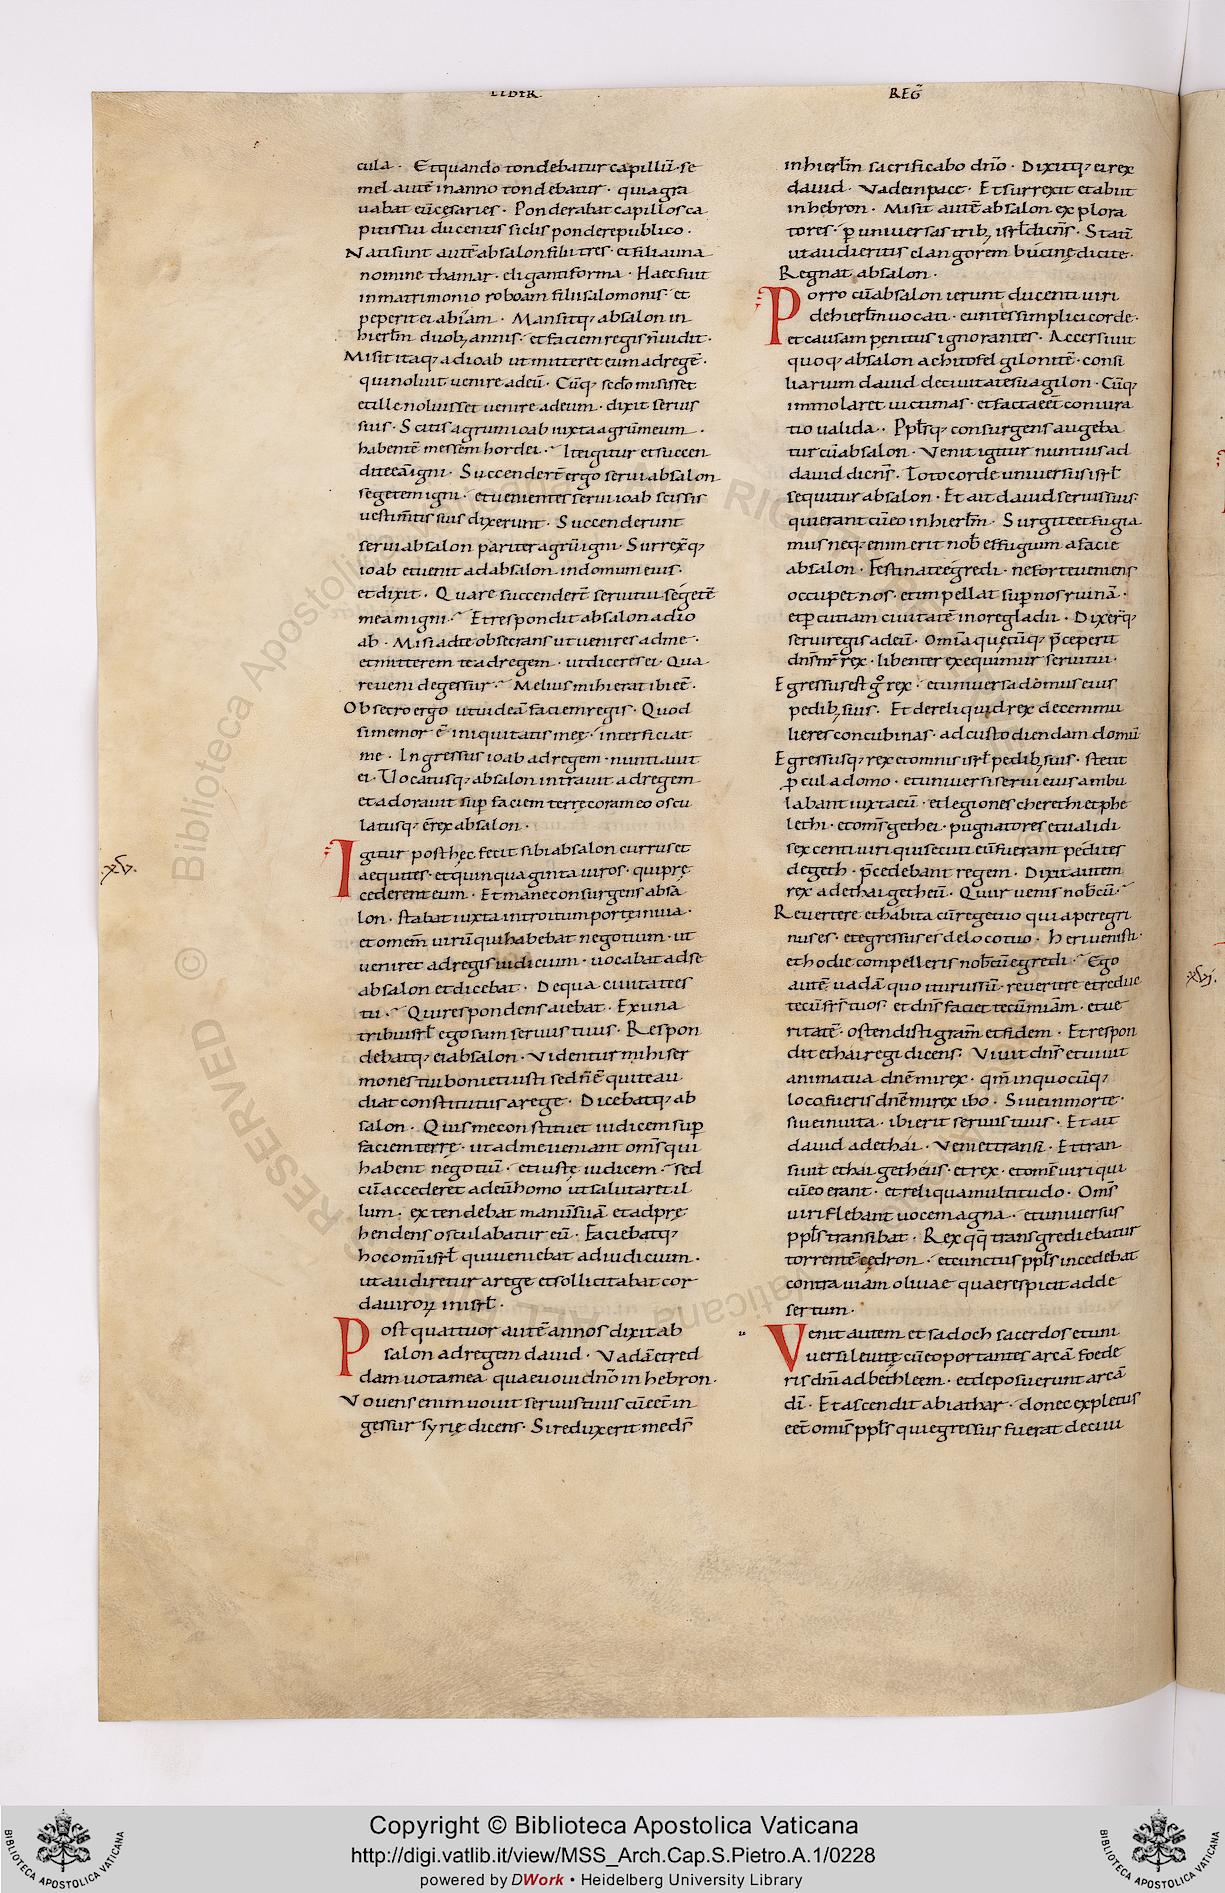 LIBER
REG̃
cula · Et quando tondebatur capillũ · se
mel autẽ in anno tondebatur · quia gra
uabat eũ cęsaries · Ponderabat capillos ca
pitis sui ducentis siclis pondere publico ·
Nati sunt autẽ absalon filii tres · et filia una
nomine thamar · eliganti forma · Haec fuit
in matrimonio roboam filii salomonis · et
peperit ei abiam · Mansitq; absalon in
hierłm duob; annis · et faciem regis ñ uidit ·
Misit itaq; ad ioab ut mitteret eum ad regẽ ·
qui noluit uenire ad eũ · Cũq; sedo misisset
et ille noluisset uenire ad eum · dixit seruis
suis · Scitis agrum ioab iuxta agrũ meum ·
habentẽ messem hordei · Ite igitur et succen
dite eã igni · Succenderẽ ergo serui absalon
segetem igni · et uenientes serui ioab scissis
uestim̃tis suis dixerunt · Succenderunt
serui absalon pariter agrũ igni · Surrex̃q;
ioab et uenit ad absalon in domum eius ·
et dixit · Quare succenderẽ serui tui segetẽ
meam igni · Et respondit absalon ad io
ab · Misi ad te obsecrans ut uenires ad me ·
et mitterem te ad regem · ut diceres ei · Qua
re ueni de gessur · Melius mihi erat ibi eẽ ·
Obsecro ergo ut uideã faciem regis · Quod
si memor ẽ iniquitatis meę · interficiat
me · Ingressus ioab ad regem · nuntiauit
ei · Uocatusq; absalon intrauit ad regem
et adorauit sup̱ faciem terrę coram eo oscu
latusq; ẽ rex absalon ·
Igitur post hęc fecit sibi absalon currus et
aequites · et quinquaginta uiros · qui prę
cederent eum · Et mane consurgens absa
lon · stabat iuxta introitum portę in uia ·
et omem̃ uirũ qui habebat negotium · ut
ueniret ad regis iudicium · uocabat ad se
absalon et dicebat · De qua ciuitate es
tu · Qui respondens aiebat · Ex una
tribu isrł ego sum seruus tuus · Respon
debatq; ei absalon · Videntur mihi ser
mones tui boni et iusti sed ñ ẽ qui te au
diat constitutus a rege · Dicebatq; ab
salon · Quis me constituet iudicem sup̱
faciem terrę · ut ad me ueniant om̃s qui
habent negotiũ · et iustę iudicem · sed
cũ accederet ad eũ homo ut salutaret il
lum · extendebat manũ suã et adprę
hendens osculabatur eũ · Faciebatq;
hoc omi isrł qui ueniebat ad iudicium ·
ut audiretur a rege et sollicitabat cor
da uiroꝝ in isrł ·
Post quattuor autẽ annos dixit ab
salon ad regem dauid · Vadã et red
dam uota mea quae uoui dño in hebron ·
Vouens enim uouit seruus tuus cũ eẽt in
gessur syrię dicens · Si reduxerit me dñs
in hierłm sacrificabo dño · Dixitq; ei rex
dauid · Vade in pace · Et surrexit et abiit
in hebron · Misit autẽ absalon explora
tores · p̱ uniuersas trib; isrł diceñs · Statĩ
ut audieritis clangorem bucinę dicite ·
Regnat absalon ·
Porro cũ absalon ierunt ducenti uiri
de hierłm uocati · euntes simplici corde ·
et causam penitus ignorantes · Accersiuit
quoq; absalon achitofel gilonitẽ · consi
liarium dauid de ciuitate sua gilon · Cũq;
immolaret uictimas · et facta eẽt coniura
tio ualida · Ppłsq; consurgens augeba
tur cũ absalon · Venit igitur nuntius ad
dauid diceñs · Toto corde uniuersus isrł
sequitur absalon · Et ait dauid seruis suis ·
qui erant cũ eo in hierłm · Surgite et fugia
mus neq; enim erit nob̃ effugium a facie
absalon · Festinate egredi · ne forte ueniens
occupet nos · et impellat sup̱ nos ruinã ·
et p̱cutiam ciuitatẽ in ore gladii · Dixer̃q;
serui regis ad eũ · Omĩa quęcũq; p̃ceperit
dñs nr̃ rex · libenter exequimur serui tui ·
Egressus est g̊ rex · et uniuersa domus eius
pedib; suis · Et dereliquid rex decem mu
lieres concubinas · ad custodiendam domũ
Egressusq; rex et omnis isrł pedib; suis · stetit
p̱cul a domo · et uniuersi serui eius ambu
labant iuxta eũ · et legiones cherethi et phe
lethi · et om̃s gethei · pugnatores et ualidi
sexcenti uiri qui secuti eũ fuerant pedites
de geth · p̃cedebant regem · Dixit autem
rex ad ethai getheũ · Quir uenis nob̃cũ ·
Reuertere et habita cũ rege tuo quia peregri
nus es · et egressus es de loco tuo · Heri uenisti ·
et hodie compelleris nob̃cũ egredi · Ego
autẽ uadã quo iturus sũ · reuertere et reduc
tecũ fr̃s tuos · et dñs faciet tecũ miãm · et ue
ritatẽ · ostendisti gram̃ et fidem · Et respon
dit ethai regi dicens · Viuit dñs et uiuit
anima tua dñe mi rex · qm̃ in quocũq;
loco fueris dñe mi rex ibo · Siue in morte ·
siue in uita · ibi erit seruus tuus · Et ait
dauid ad ethai · Veni et transi · Et tran
siuit ethai getheus · et rex · et om̃s uiri qui
cũ eo erant · et reliqua multitudo · Om̃s
uiri flebant uoce magna · et uniuersus
ppłs transibat · Rex qq̃ transgrediebatur
torrentẽ cedron · et cunctus ppłs incedebat
contra uiam oliuae quae respicit ad de
sertum ·
Venit autem et sadoch sacerdos et uni
uersi leuitę cũ eo portantes arcã foede
ris dñi ad bethleem · et deposuerunt arcã
dĩ · Et ascendit abiathar · donec expletus
eẽt omis̃ ppłs qui egressus fuerat de ciui
·xv·
·xvj·
Copyright © Biblioteca Apostolica Vaticana
http://digi.vatlib.it/view/MSS_Arch.Cap.S.Pietro.A.1/0228
powered by DWork • Heidelberg University Library